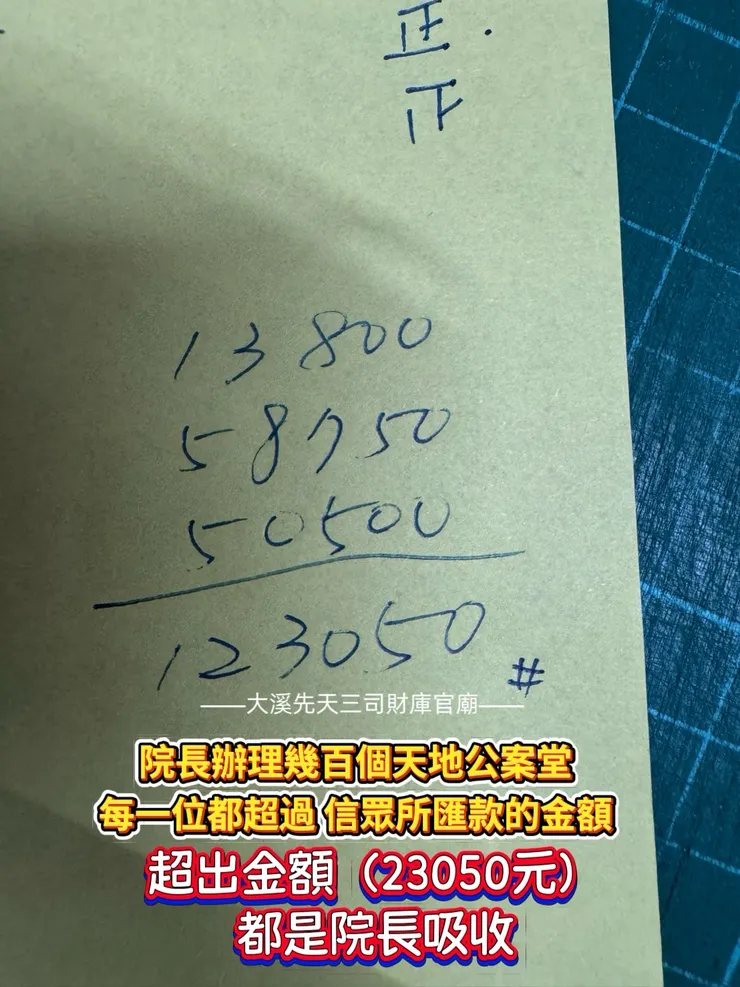 正.
正
13800
58750
50500
123050#
——大溪先天三司財庫官廟——
院長辦理幾百個天地公案堂
每一位都超過 信眾所匯款的金額
超出金額（23050元）
都是院長吸收